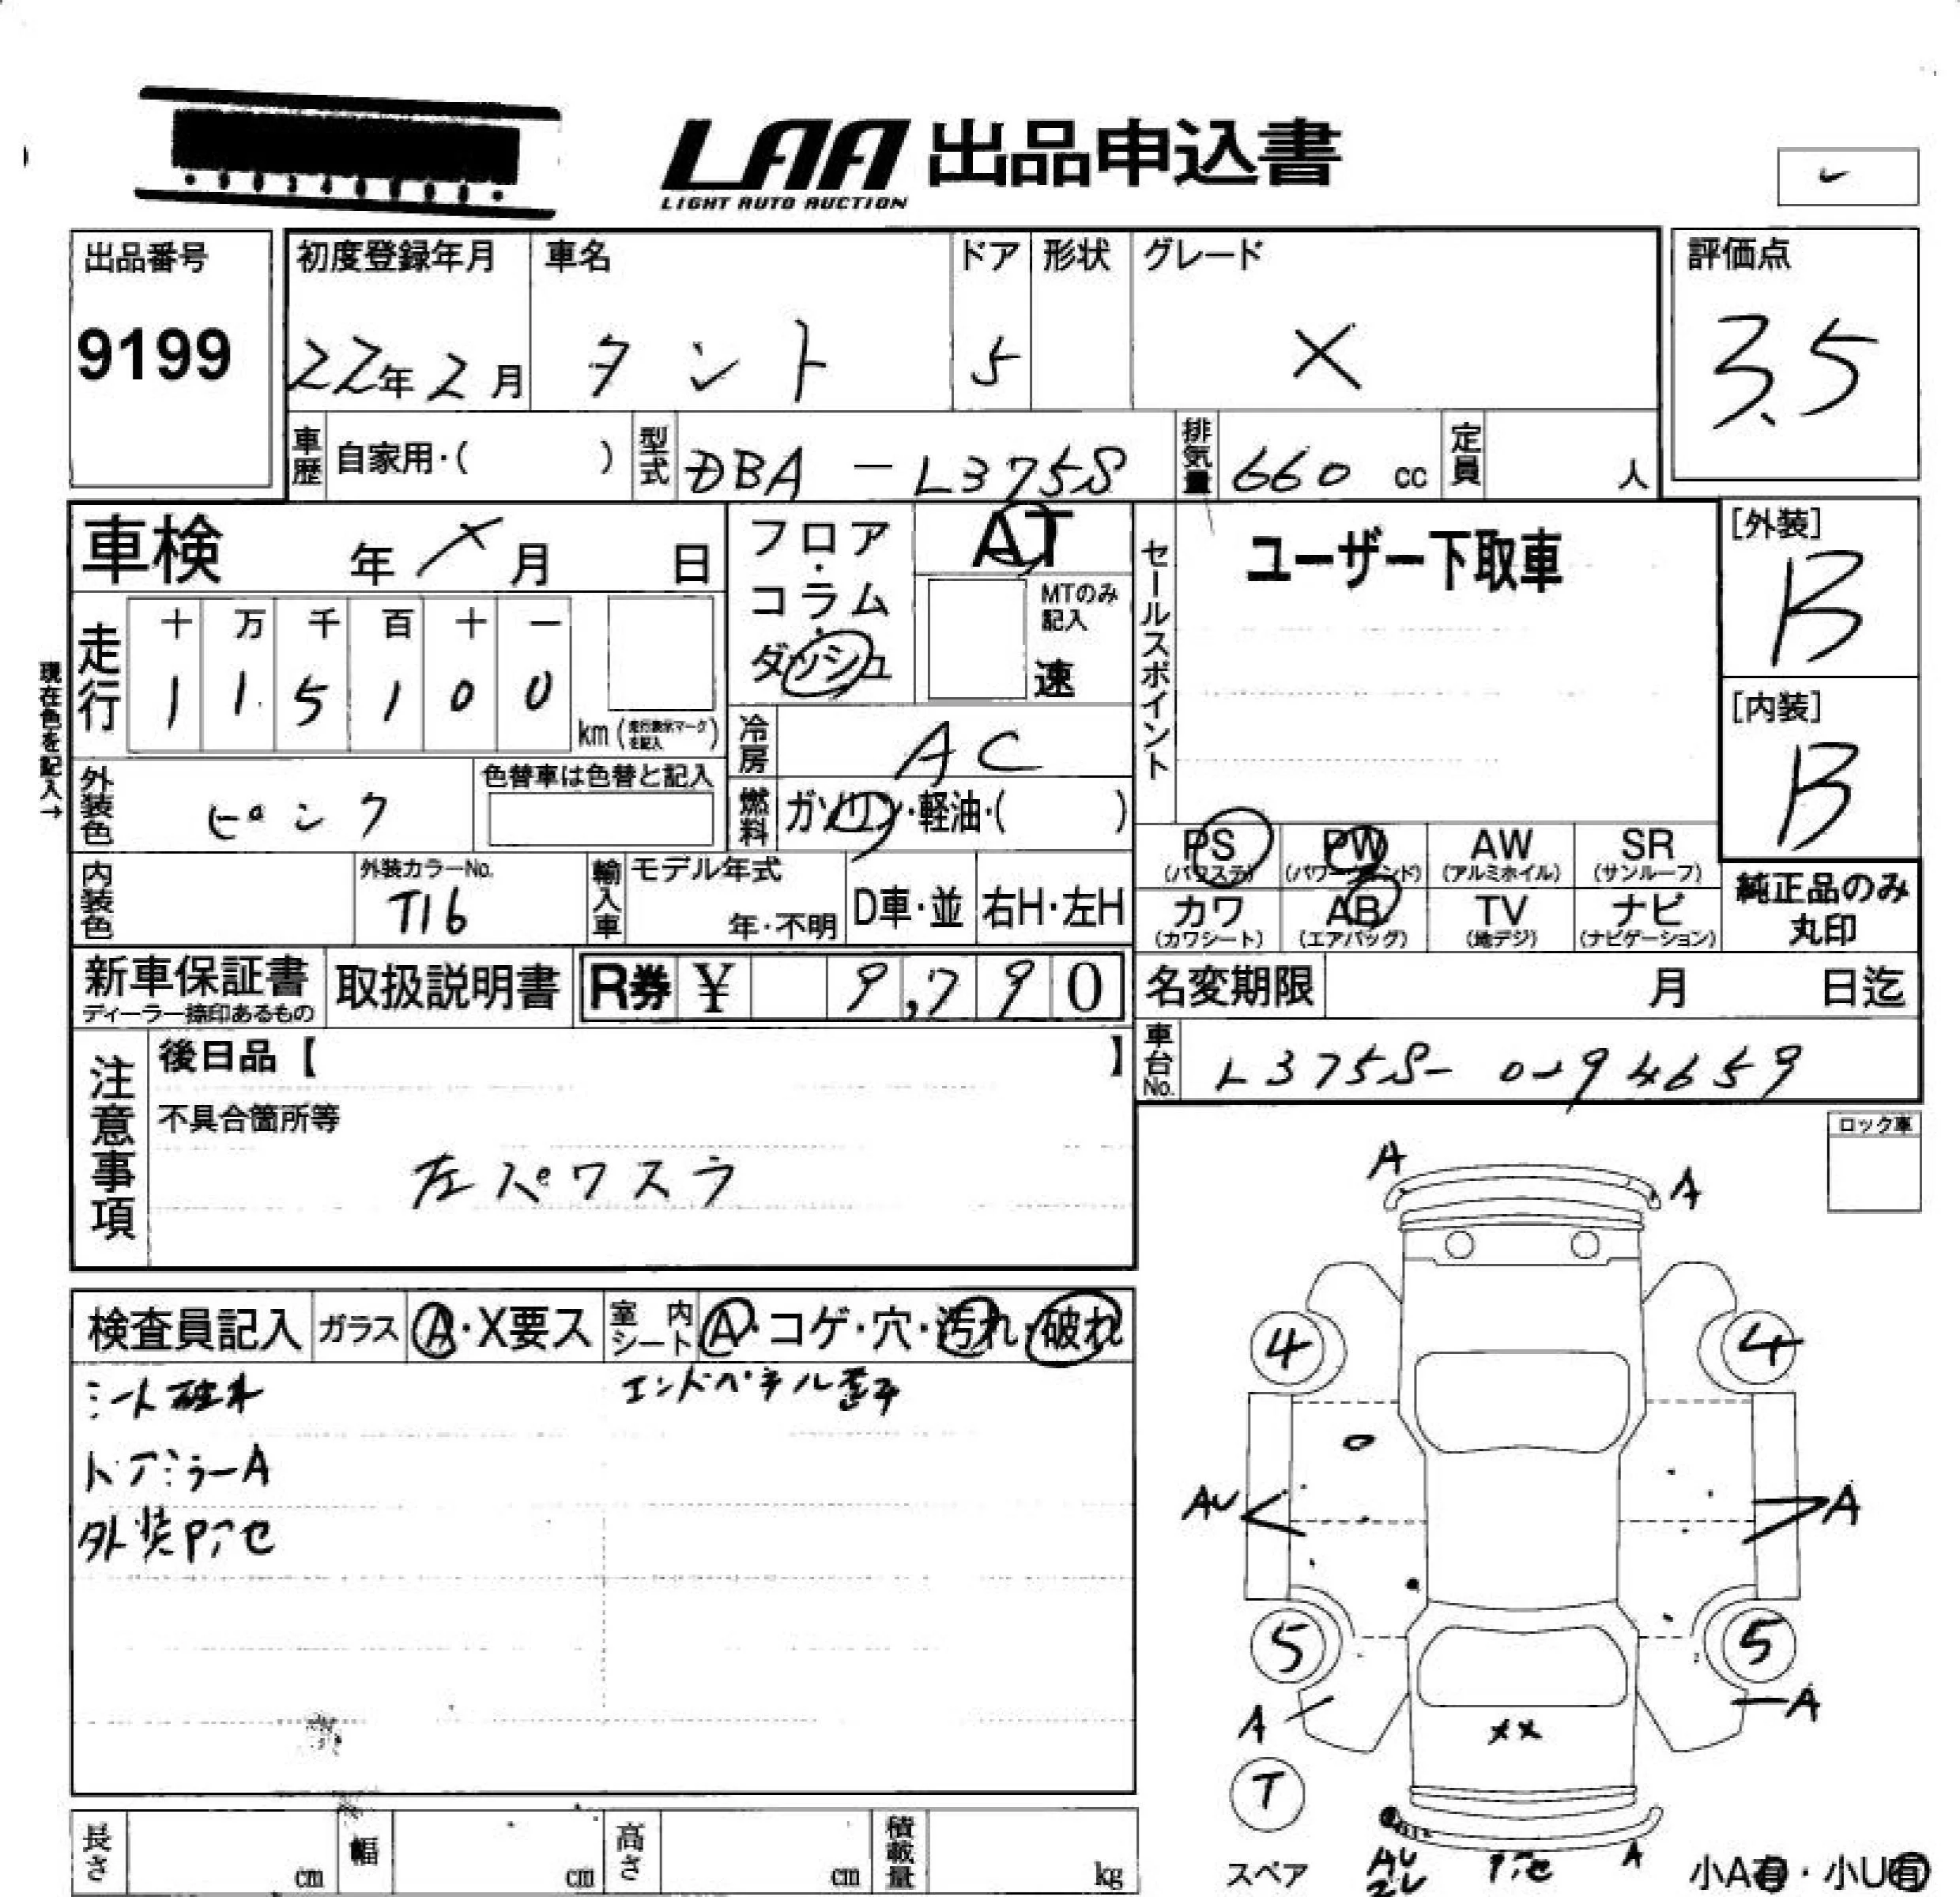 LAA 出品申込書
LIGHT AUTO AUCTION
出品番号
9199
初度登録年月
22年2月
車名
タント
ドア
5
形状
グレード
X
評価点
3.5
車歴
自家用・( )
型式
DBA-L375S
排気量
660 cc
定員
人
車検 年 月 日
走行
十 万 千 百 十 一
1 1 5 1 0 0
km (走行表示マークを記入)
現在色を記入→
外装色
ピンク
色替車は色替と記入
内装色
外装カラーNo.
T16
フロア・コラム・ダッシュ
AT
MTのみ記入
速
冷房
AC
燃料
ガソリン・軽油・( )
輸入車
モデル年式
年・不明
D車・並
右H・左H
セールスポイント
ユーザー下取車
[外装]
B
[内装]
B
PS
(パワステ)
PW
(パワーウィンド)
AW
(アルミホイル)
SR
(サンルーフ)
カワ
(カワシート)
AB
(エアバッグ)
TV
(地デジ)
ナビ
(ナビゲーション)
純正品のみ
丸印
新車保証書
ディーラー捺印あるもの
取扱説明書
R券 ¥ 9,790
名変期限 月 日迄
車台No.
L375S-0294659
注意事項
後日品【 】
不具合箇所等
左パワスラ
ロック車
検査員記入
ガラス
A・X要ス
室内シート
A・コゲ・穴・汚れ・破れ
シート破れ
エンドパネル歪
ドアミラーA
外装Pアセ
A
A
4
4
AU
A
5
5
A
A
XX
T
スペア
AU
Pアセ
A
小A有・小U有
長さ cm
幅 cm
高さ cm
積載量 kg